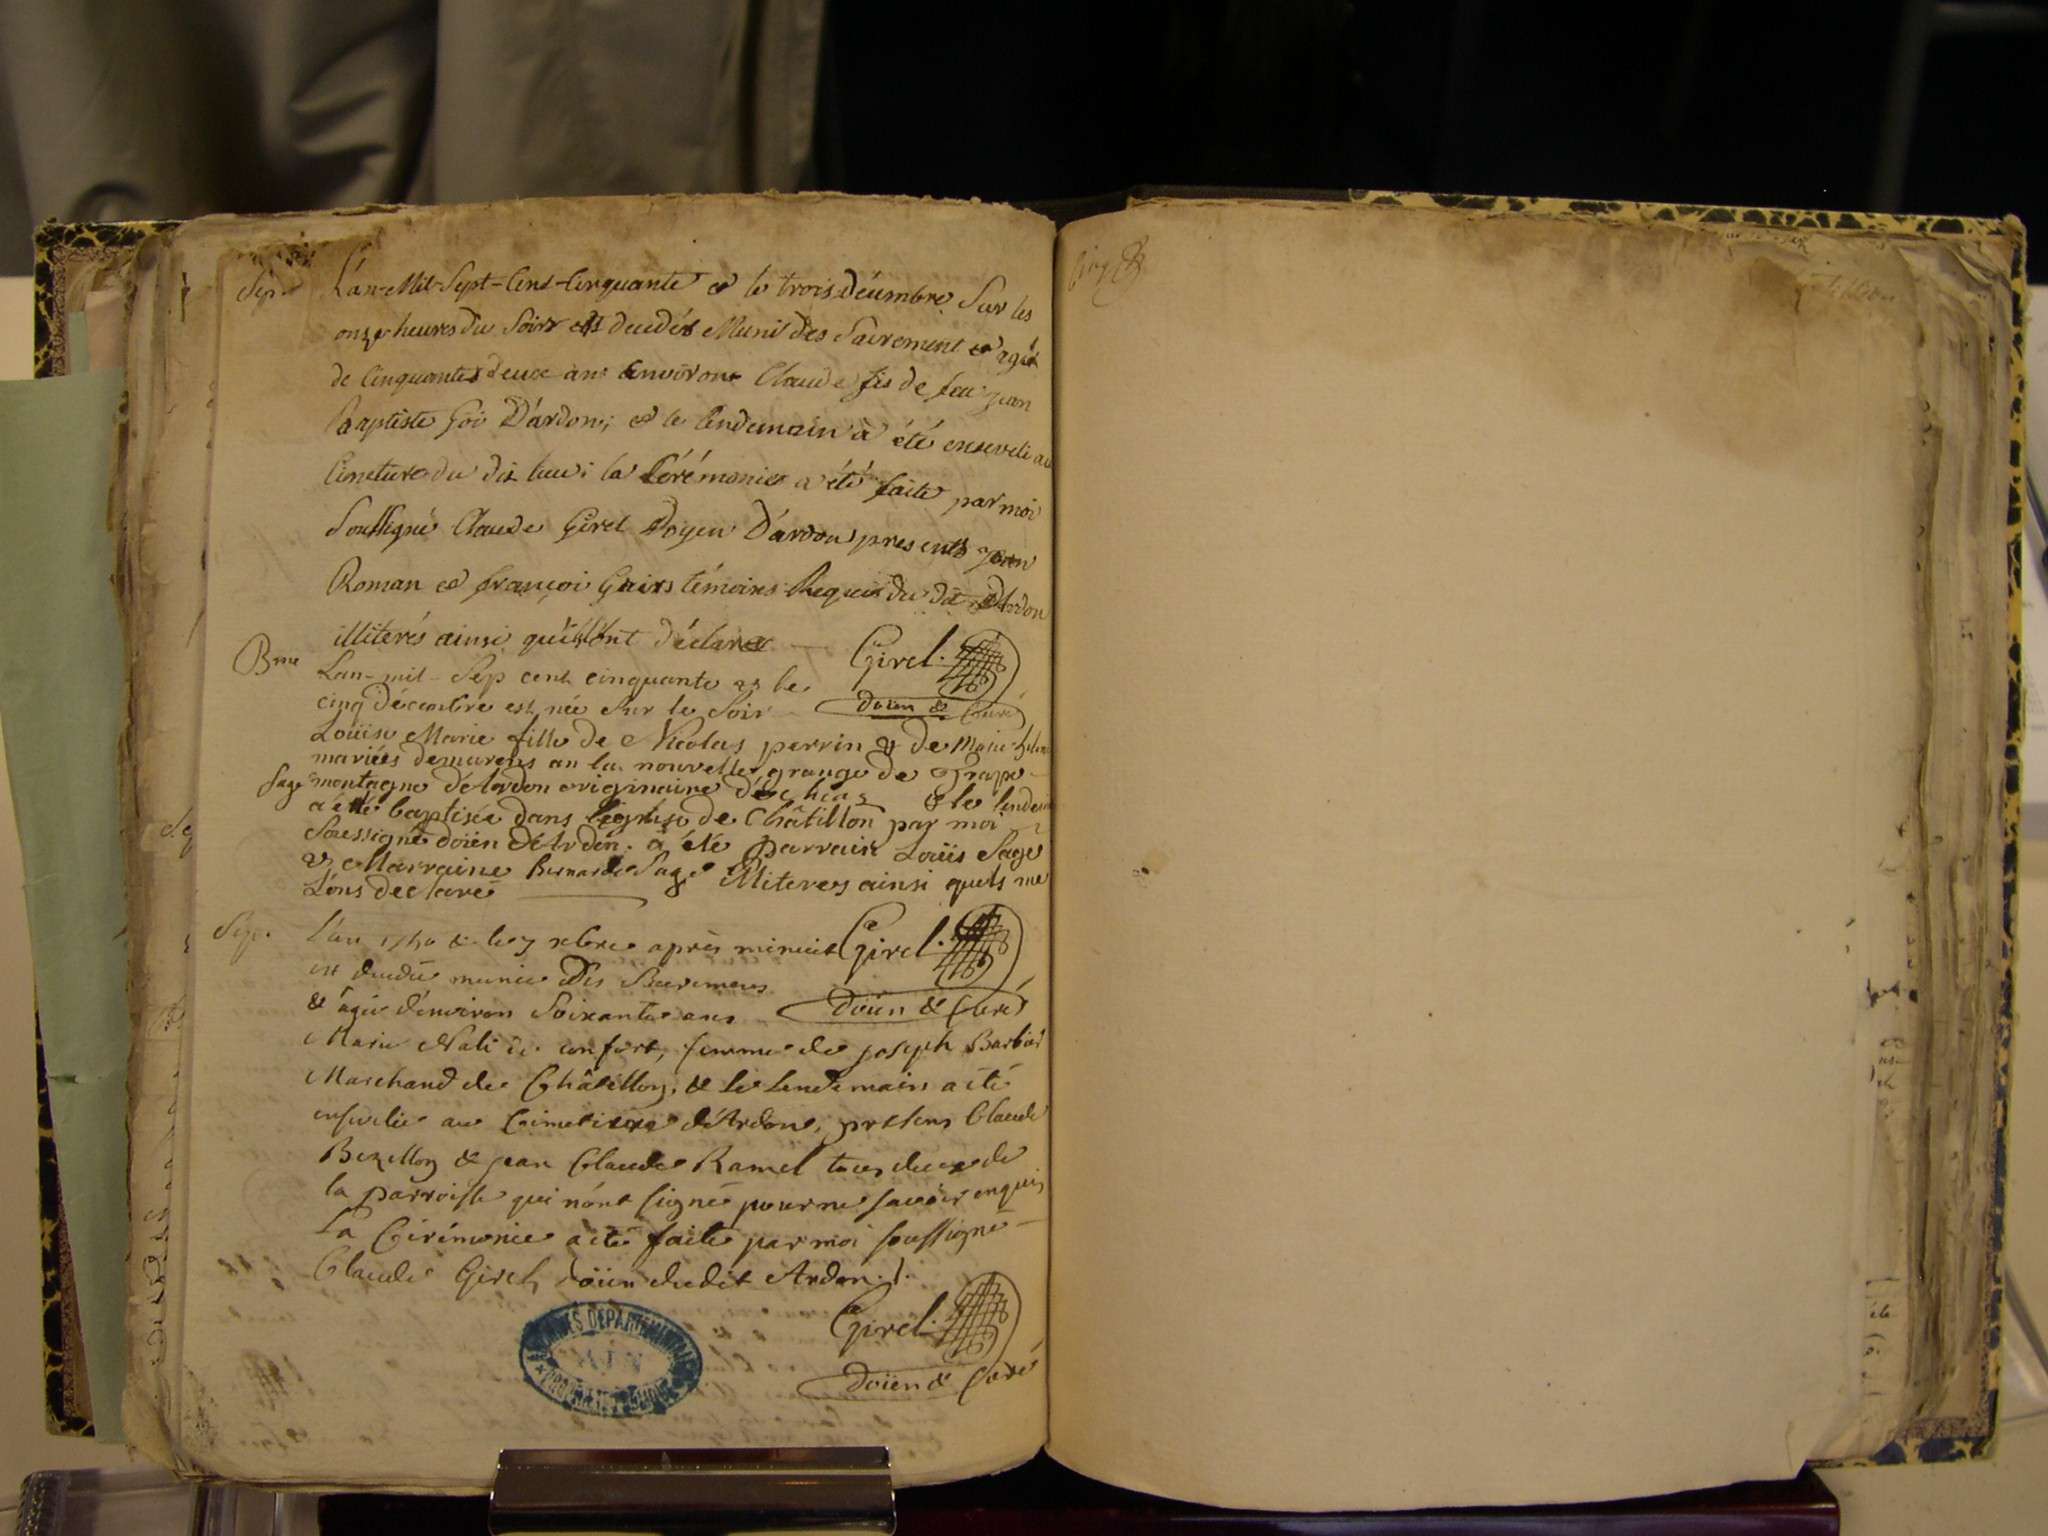 Sep. L'an Mil-Sept-Cent-Cinquante & le trois Décembre Sur les
onze heures du Soir est decedés Muni des Sacrement & agée
de Cinquantes deux ans Environs Claude fis de feu jean
Baptiste Goi D'ardon; & le lendemain à été enseveli au
Cimeture du dit lieu; la Cérémonies a été faite par moi
Soussigné Claude Girel Doyen D'ardon presents jean
Roman & françoi témoins Requis du dit Ardon
illiterés ainsi qu'ils l'ont déclaré
Girel.
doien & Curé
Bme Lan-mil-Sep cent cinquante & le
cinq décembre est née Sur le Soir
Loüise Marie fille de Nicolas perrin & de Marie
mariées demurens an la nouvelle grange de
Sage montagne d'Ardon originaire & le lendemain
a été baptisée dans l'eglise de Châtillon par moi
Soussigné doien d'Ardon. a été parrain Loüis Sage
& Marraine Bernarde Sage illiteres ainsi quels me
L'ons declaré
Sep. L'an 1750 & le 7 xbre après minuit
est decedée munie des Sacremens
& âgée d'environ Soixante ans
Girel.
doïen & Curé
Marie de confort, femme de joseph Barbier
Marchand de Châtillon, & le lendemain a été
ensevelie au Cimetiere d'Ardon, presens Claude
& jean Claude Ramel tous deux de
la parroisse qui n'ont signé pour ne savoir enquis
La Cérémonie a été faite par moi soussigné
Claude Girel, Doïen dudit Ardon./.
Girel.
doïen & Curé
ARCHIVES DEPARTEMENTALES
AIN